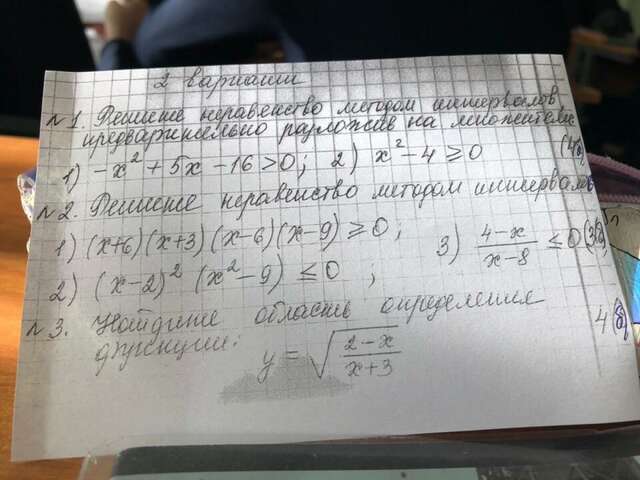 2 вариант
№1. Решите неравенство методом интервалов
предварительно разложив на множители
1) -x² + 5x - 16 > 0; 2) x² - 4 ≥ 0 (4б)
№2. Решите неравенство методом интервалов
1) (x+6)(x+3)(x-6)(x-9) ≥ 0; 3) (4-x)/(x-8) ≤ 0 (3б)
2) (x-2)² (x²-9) ≤ 0 ;
№3. Найдите область определения 4(б)
функции: y = √((2-x)/(x+3))